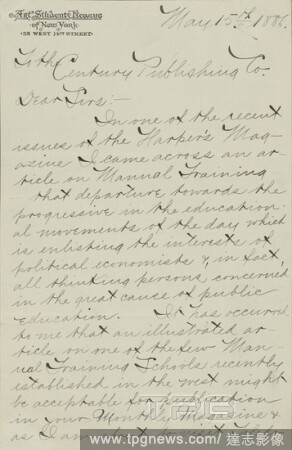 Art Students League
of New York
38 WEST 14TH STREET
May 15th, 1886.
To the Century Publishing Co.
Dear Sirs:-
In one of the recent
issues of the Harper's Mag-
azine I came across an ar-
ticle on Manual Training
- that departure towards the
progressive in the education-
al movements of the day which
is enlisting the interests of
political economists &, in fact,
all thinking persons concerned
in the great cause of public
education. It has occurred
to me that an illustrated ar-
ticle on one of the few Man-
ual Training Schools recently
established in the west might
be acceptable for publication
in your Monthly Magazine &
as I am
www.tpgnews.com / 達志影像